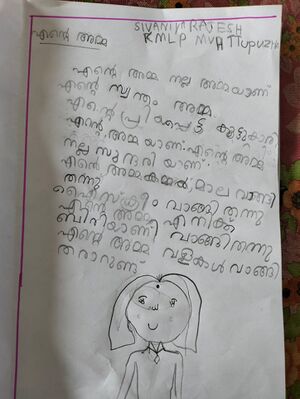 എന്റെ അമ്മ
SIVANIYA RAJESH
KMLP MUHATTUPUZHA
എന്റെ അമ്മ നല്ല അമ്മയാണ്
എന്റെ സ്വന്തം അമ്മ
എന്റെ പ്രിയപ്പെട്ട കൂട്ടുകാരി
എന്റെ അമ്മയാണ്. എന്റെ അമ്മ
നല്ല സുന്ദരിയാണ്
എന്റെ അമ്മ കമ്മൽ, മാല വാങ്ങി
തന്നു
ഐസ്ക്രീം വാങ്ങി തന്നു
എന്റെ അമ്മ എനിക്ക്
വാങ്ങി തന്നു
എന്റെ അമ്മ വളകൾ വാങ്ങി
തരാറുണ്ട്